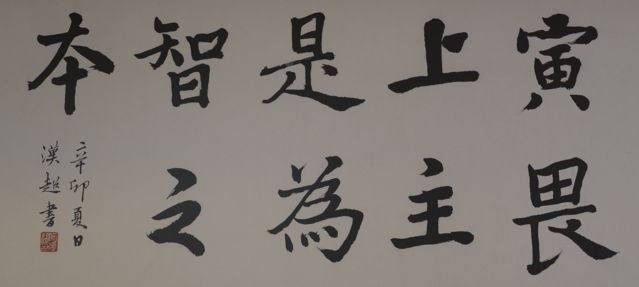 寅畏
上主
是為
智之
本
辛卯夏日
漢超書